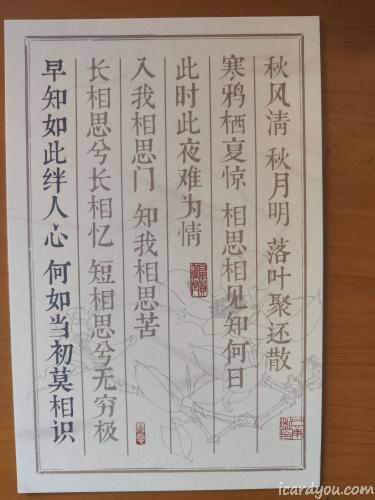 秋风清 秋月明 落叶聚还散
寒鸦栖复惊 相思相见知何日
此时此夜难为情
入我相思门 知我相思苦
长相思兮长相忆 短相思兮无穷极
早知如此绊人心 何如当初莫相识
icardyou.com